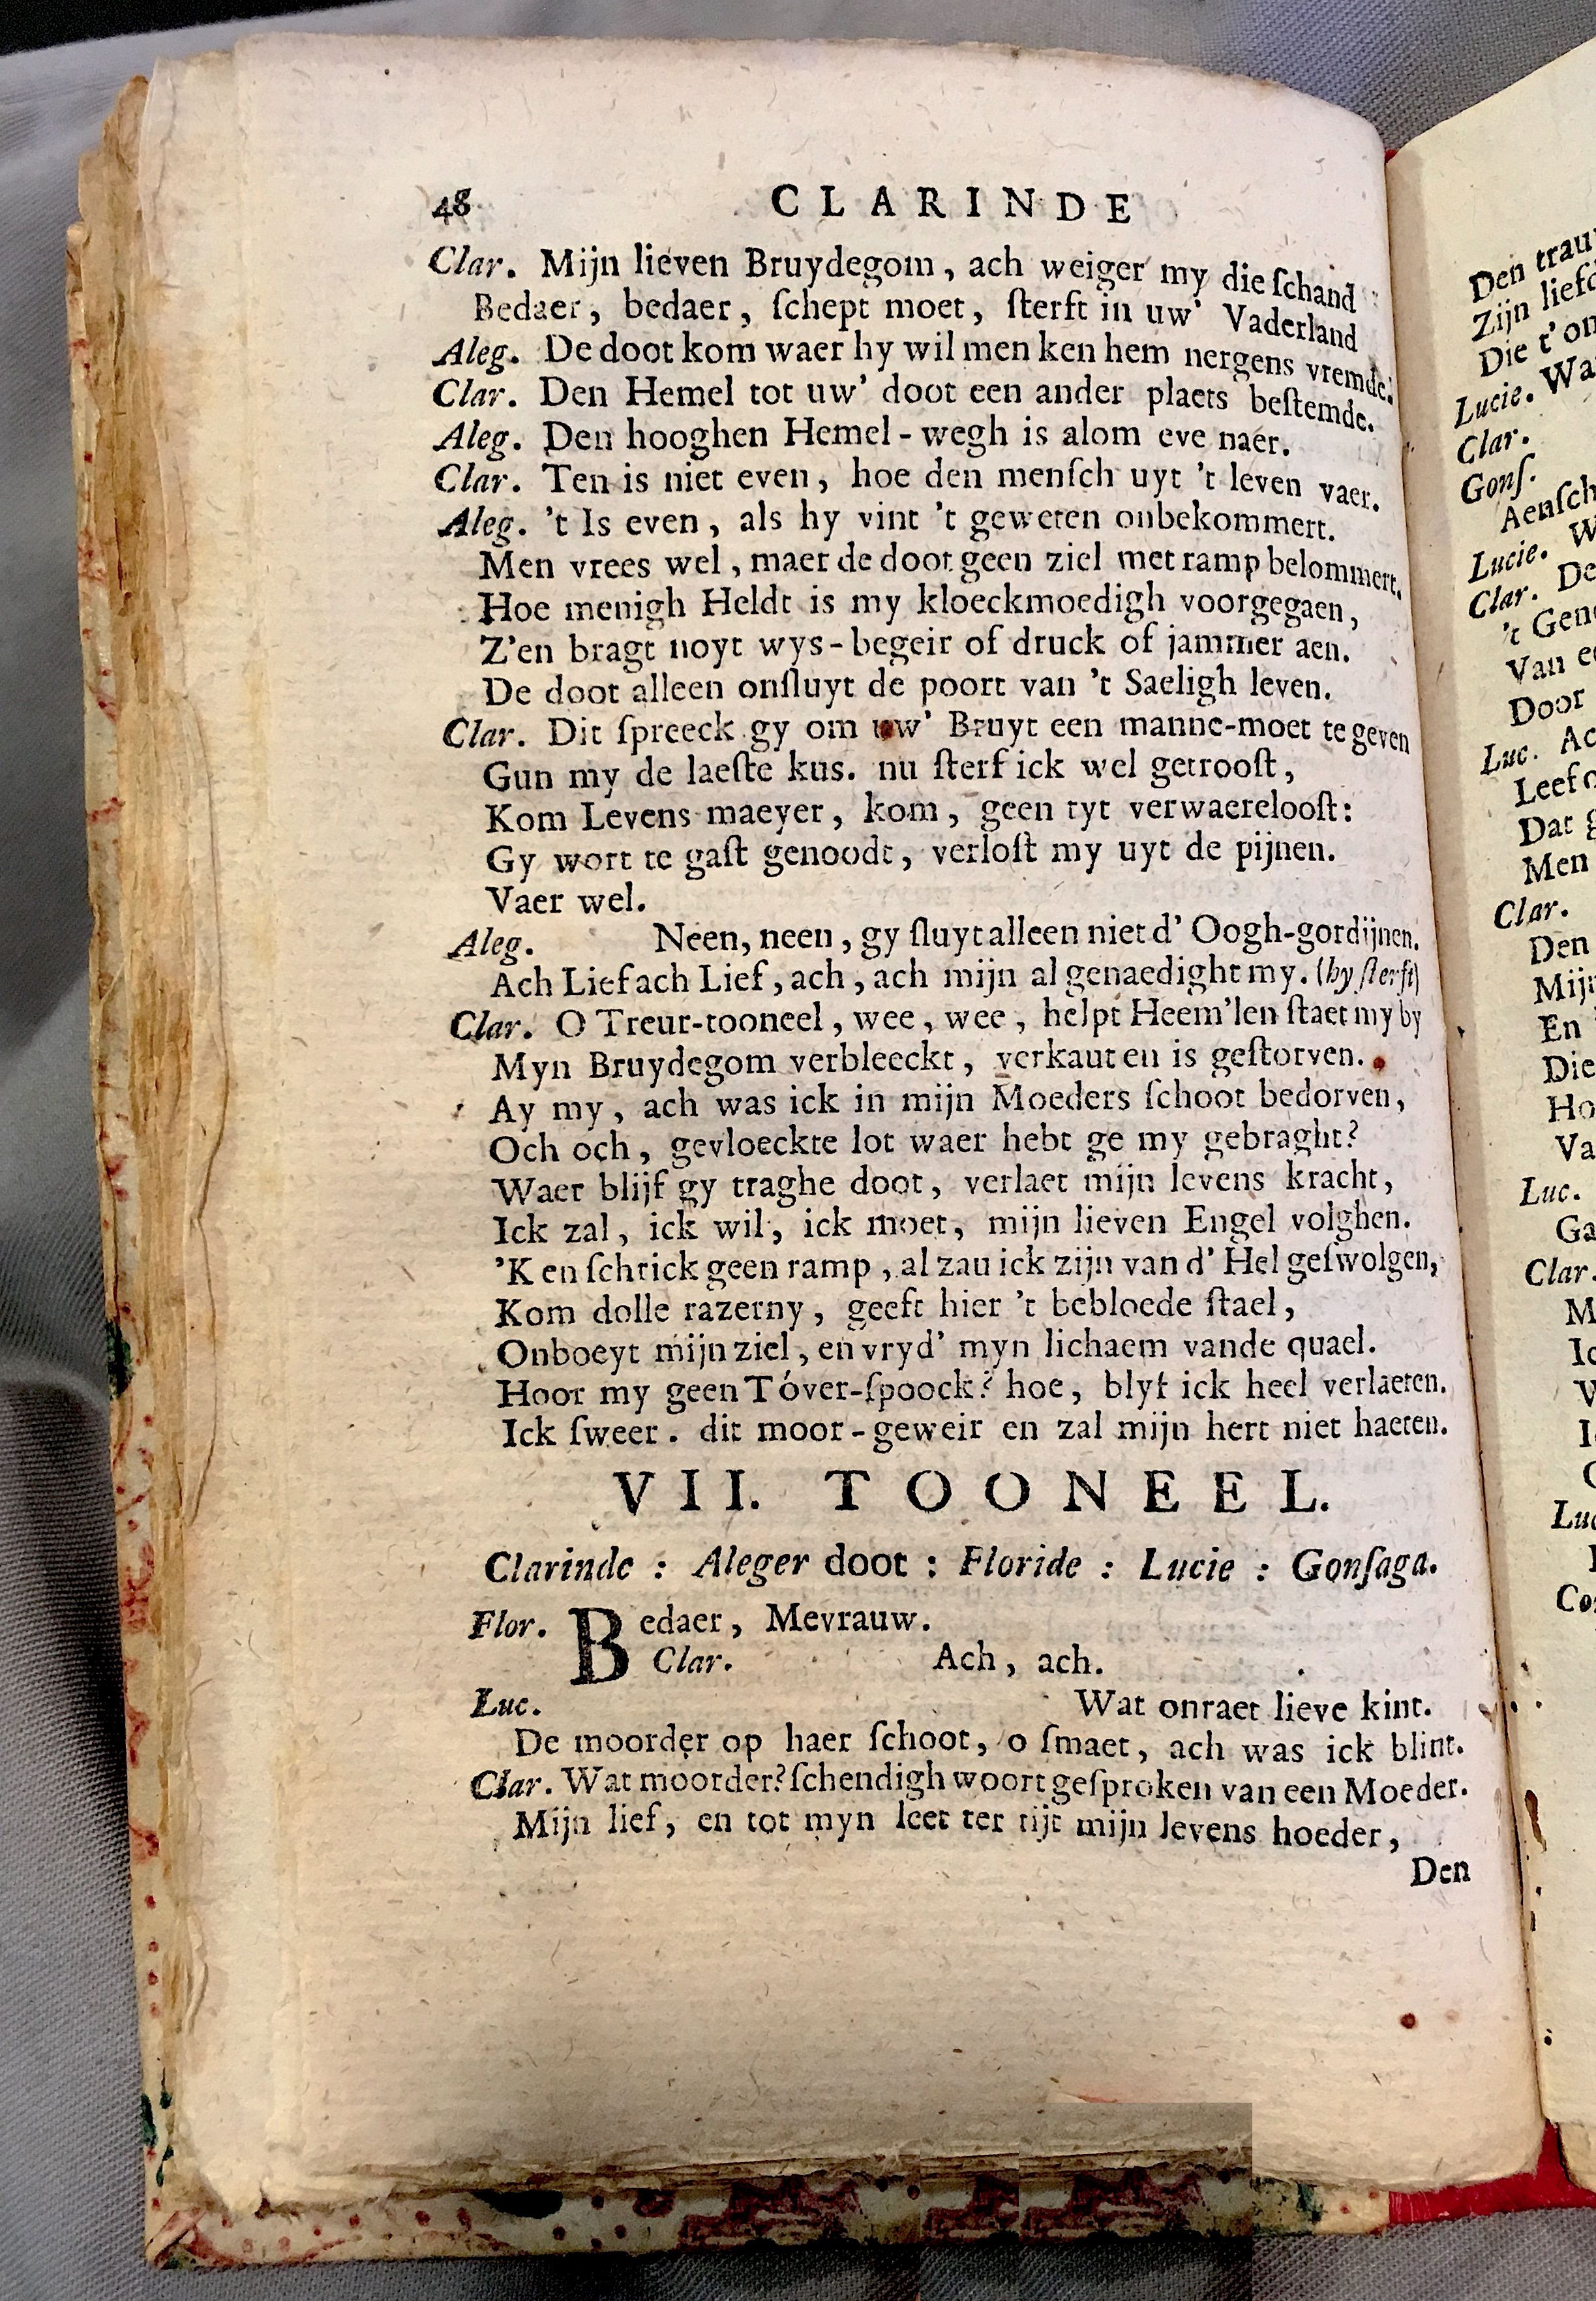 48 CLARINDE
Clar. Mijn lieven Bruydegom, ach weiger my die ſchand
Bedaer, bedaer, ſchept moet, ſterft in uw' Vaderland
Aleg. De doot kom waer hy wil men ken hem nergens vremde.
Clar. Den Hemel tot uw' doot een ander plaets beſtemde.
Aleg. Den hooghen Hemel-wegh is alom eve naer.
Clar. Ten is niet even, hoe den menſch uyt 't leven vaer.
Aleg. 't Is even, als hy vint 't geweten onbekommert.
Men vrees wel, maer de doot geen ziel met ramp belommert.
Hoe menigh Heldt is my kloeckmoedigh voorgegaen,
Z'en bragt noyt wys-begeir of druck of jammer aen.
De doot alleen onſluyt de poort van 't Saeligh leven.
Clar. Dit ſpreeck gy om uw' Bruyt een manne-moet te geven
Gun my de laeſte kus. nu ſterf ick wel getrooſt,
Kom Levens maeyer, kom, geen tyt verwaerelooſt:
Gy wort te gaſt genoodt, verloſt my uyt de pijnen.
Vaer wel.
Aleg. Neen, neen, gy ſluyt alleen niet d' Oogh-gordijnen.
Ach Lief ach Lief, ach, ach mijn al genaedight my. (hy ſterft)
Clar. O Treur-tooneel, wee, wee, helpt Heem'len ſtaet my by
Myn Bruydegom verbleeckt, verkaut en is geſtorven.
Ay my, ach was ick in mijn Moeders ſchoot bedorven,
Och och, gevloeckte lot waer hebt ge my gebraght?
Waer blijf gy traghe doot, verlaet mijn levens kracht,
Ick zal, ick wil, ick moet, mijn lieven Engel volghen.
'K en ſchrick geen ramp, al zau ick zijn van d' Hel geſwolgen,
Kom dolle razerny, geeft hier 't bebloede ſtael,
Onboeyt mijn ziel, en vryd' myn lichaem vande quael.
Hoor my geen Tóver-ſpoock? hoe, blyf ick heel verlaeten.
Ick ſweer. dit moor-geweir en zal mijn hert niet haeten.
VII. TOONEEL.
Clarinde : Aleger doot : Floride : Lucie : Gonſaga.
Flor. Bedaer, Mevrauw.
Clar. Ach, ach.
Luc. Wat onraet lieve kint.
De moorder op haer ſchoot, o ſmaet, ach was ick blint.
Clar. Wat moorder? ſchendigh woort geſproken van een Moeder.
Mijn lief, en tot myn leet ter tijt mijn levens hoeder,
Den
Den
Zijn
Die t'
Lucie.
Clar.
Gonſ.
Lucie.
Clar. De
't
Van
Door
Luc.
Dat
Men
Clar.
Den
En
Die
Luc.
Clar.